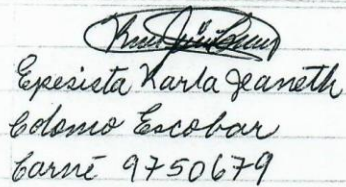 Epesista Karla Jeaneth
Colomo Escobar
Carné 9750679